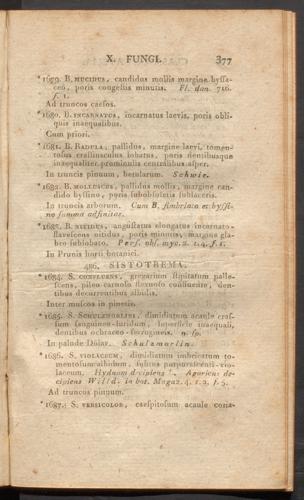 X. FUNGI. 377
*1679. B. MUCIDUS, candidus mollis margine byssa-
ceo, poris congestis minutis. Fl. dan. 716.
f. 1.
Ad truncos caesos.
*1680. B. INCARNATUS, incarnatus laevis, poris obli-
quis inaequalibus.
Cum priori.
*1681. B. RADULA, pallidus, margine laevi, tomen-
tosus crassiusculus lobatus, poris dentibusque
inaequaliter prominulis centralibus asper.
In truncis pinuum, betularum. Schwie.
*1682. B. MOLLUSCUS, pallidus mollis, margine can-
dido byssino, poris subobliteratis sublaceris.
In truncis arborum. Cum B. fimbriato et byssi-
no summa adfinitas.
*1683. B. NITIDUS, angustatus elongatus incarnato-
flavescens nitidus, poris minutis, margine gla-
bro sublobato. Pers. obs. myc. 2. t. 4. f. 1.
In Prunis horti botanici.
486. SISTOTREMA.
*1684. S. CONFLUENS, gregarium stipitatum palle-
scens, pileo carnoso flexuoso confluente, den-
tibus decurrentibus albidis.
Inter muscos in pinetis.
*1685. S. SCHULEMARTIUS, dimidiatum acaule cras-
sum sanguineo-luridum, superficie inaequali,
dentibus ochraceo-ferrugineis.
In palude Dölae. Schulemartin.
*1686. S. VIOLACEUM, dimidiatum imbricatum to-
mentosum albidum, subtus purpurascenti-vio-
laceum. Hydnum decipiens Agaricus de-
cipiens Willd. in bot. Magaz. 4. t. 2. f. 5.
Ad truncos pinuum.
*1687. S. VERSICOLOR, caespitosum acaule coria-